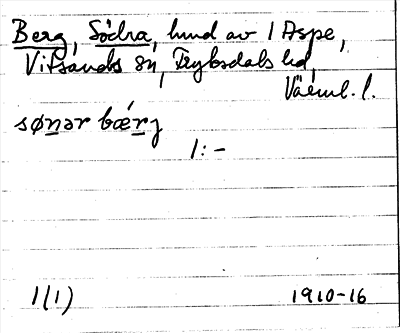 Berg, Södra, hmd av 1 Aspe,
Vitsands sn, Fryksdals hd,
Värml. l.
sønər bærj
1:-
1(1) 1910-16